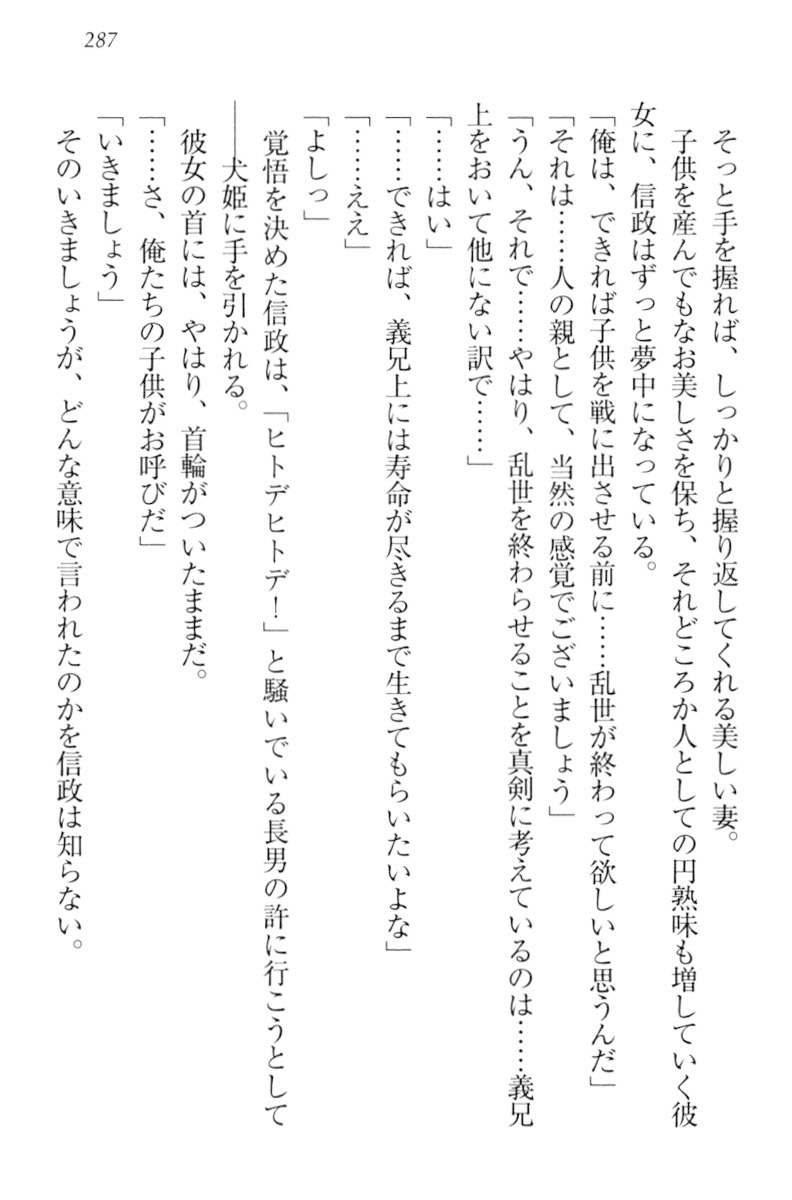 287
そっと手を握れば、しっかりと握り返してくれる美しい妻。
子供を産んでもなお美しさを保ち、それどころか人としての円熟味も増していく彼
女に、信政はずっと夢中になっている。
「俺は、できれば子供を戦に出させる前に……乱世が終わって欲しいと思うんだ」
「それは……人の親として、当然の感覚でございましょう」
「うん、それで……やはり、乱世を終わらせることを真剣に考えているのは……義兄
上をおいて他にない訳で……」
「……はい」
「……できれば、義兄上には寿命が尽きるまで生きてもらいたいよな」
「……ええ」
「よしっ」
覚悟を決めた信政は、「ヒトデヒトデ！」と騒いでいる長男の許に行こうとして
――犬姫に手を引かれる。
彼女の首には、やはり、首輪がついたままだ。
「……さ、俺たちの子供がお呼びだ」
「いきましょう」
そのいきましょうが、どんな意味で言われたのかを信政は知らない。